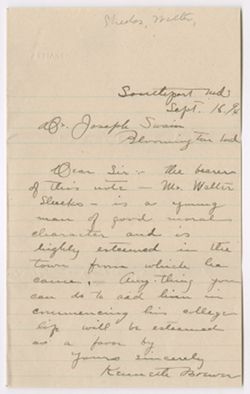 Shekos, Walter,
Southport Ind
Sept. 16/96
Dr. Joseph Swain
Bloomington Ind
Dear Sir:- the bearer
of this note - Mr. Walter
Sheeks - is a young
man of good moral
character and is
highly esteemed in the
town from which he
came. Any thing you
can do to aid him in
commencing his college
life will be esteemed
as a favor by
Yours sincerely
Kenneth Brown